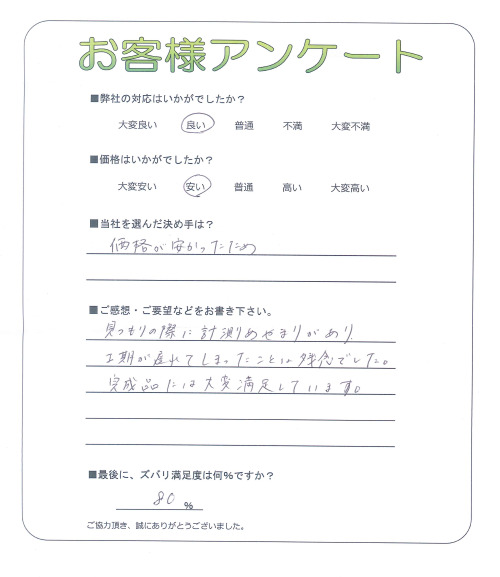 お客様アンケート
■弊社の対応はいかがでしたか？
大変良い 良い 普通 不満 大変不満
■価格はいかがでしたか？
大変安い 安い 普通 高い 大変高い
■当社を選んだ決め手は？
価格が安かったため
■ご感想・ご要望などをお書き下さい。
見つもりの際に計測あやまりがあり、
工期が遅れてしまったことは残念でした。
完成品には大変満足しています。
■最後に、ズバリ満足度は何％ですか？
80 ％
ご協力頂き、誠にありがとうございました。